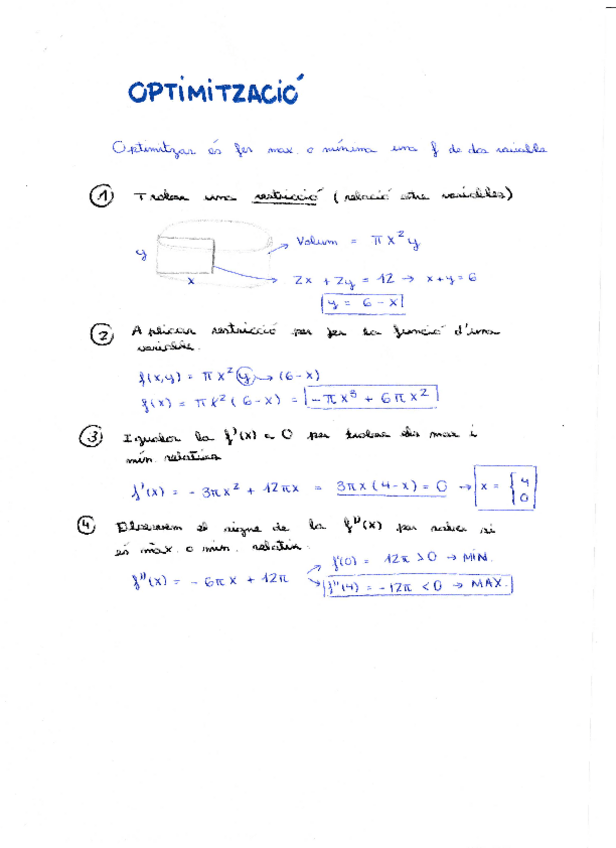 OPTIMITZACIÓ
Optimitzar és fer max. o mínima una f de dos variable
① Trobar una restricció (relació entre variables)
y
x
Volum = πx²y
2x + 2y = 12 → x+y=6
y = 6 - x
② Aplicar restricció per fer la funció d'una
variable.
f(x,y) = πx² y → (6-x)
f(x) = πx²(6-x) = -πx³ + 6πx²
③ Igualar la f'(x) = 0 per trobar els max i
mín. relatius
f'(x) = -3πx² + 12πx = 3πx(4-x) = 0 → x = { 4
0
④ Observem el signe de la f''(x) per saber si
és màx. o mín. relatiu.
f''(x) = -6πx + 12π
f(0) = 12π > 0 → MÍN.
f''(4) = -12π < 0 → MAX.